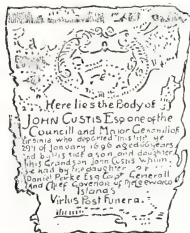 Here lies the Body of
JOHN CUSTIS Esp one of the
Councill and Major Generall of
Virginia who departed this life ye
29th of January 1696 aged years
and by his side a son and daughter
of his Grandson John Custis whom
he had by the daughter of
Daniel Parke Esq Capt Generall
and Chief Governor of the Leeward
Islands
Virtus Post Funera.